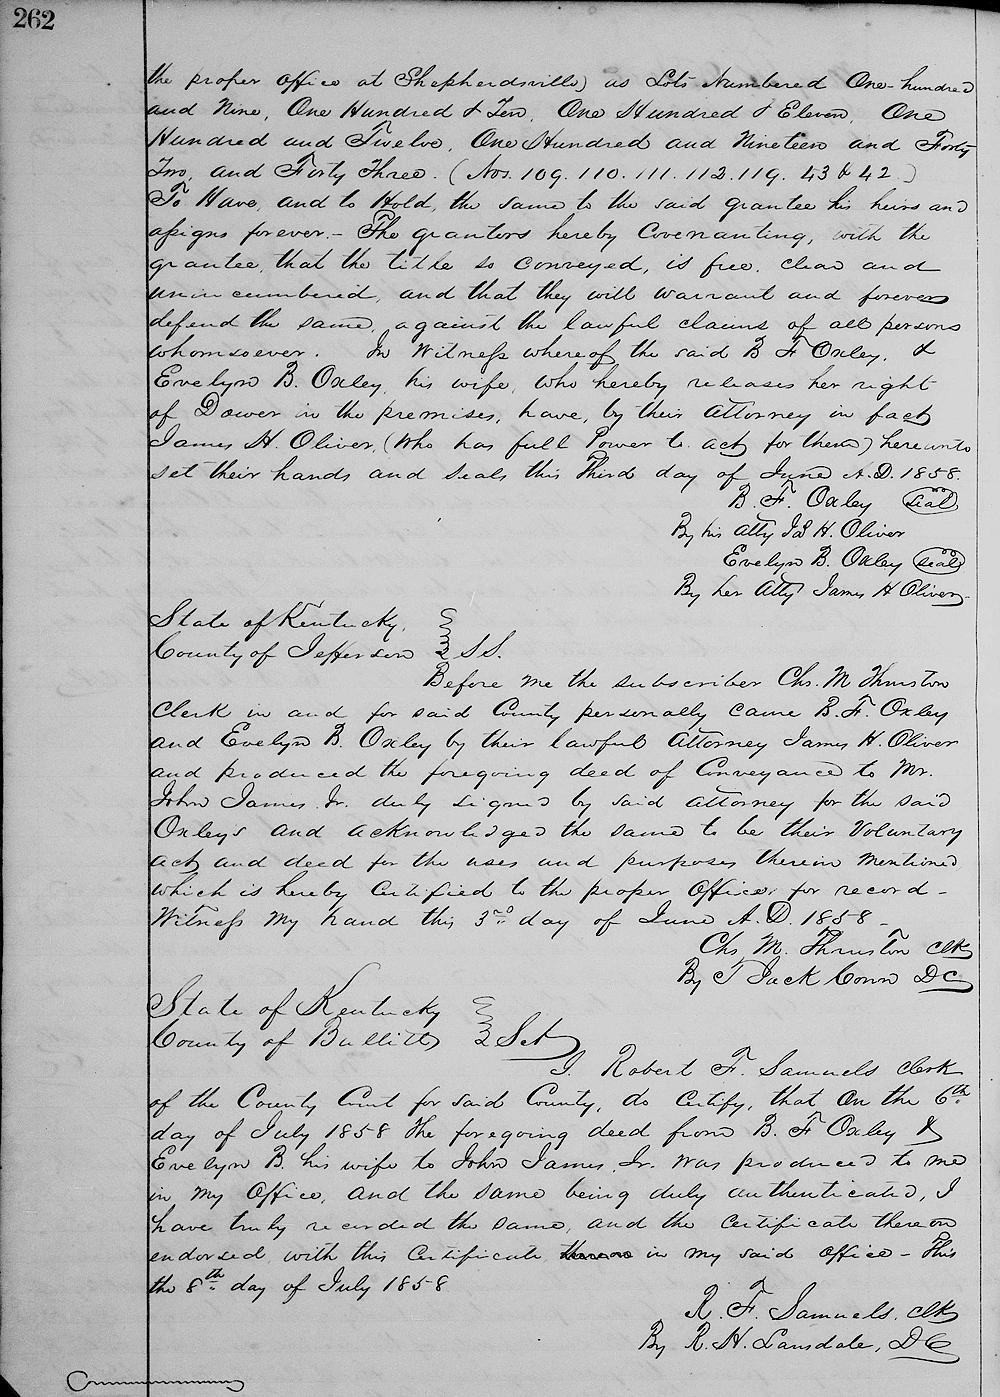 262
the proper office at Shepherdsville) as Lots Numbered One hundred
and Nine, One Hundred & Ten, One Hundred & Eleven, One
Hundred and Twelve, One Hundred and Nineteen and Forty
Two, and Forty Three. (Nos. 109. 110. 111. 112. 119. 43 & 42.)
To Have, and to Hold, the same to the said grantee his heirs and
assigns forever.- The grantors hereby Covenanting, with the
grantee, that the title so conveyed, is free, clear and
unincumbered, and that they will warrant and forever
defend the same, against the lawful claims of all persons
whomsoever. In Witness whereof the said B F Oxley, &
Evelyn B. Oxley, his wife, who hereby releases her right
of Dower in the premises, have, by their attorney in fact
James H. Oliver, (Who has full Power to act for them) hereunto
set their hands and seals this Third day of June A.D. 1858.
B. F. Oxley (seal)
By his atty Js H. Oliver
Evelyn B. Oxley (seal)
By her Atty James H Oliver
State of Kentucky,
County of Jefferson } SS.
Before me the subscriber Chs. M Thruston
Clerk in and for said County personally came B. F. Oxley
and Evelyn B. Oxley by their lawful Attorney James H. Oliver
and produced the foregoing deed of Conveyance to Mr.
John James Jr. duly signed by said attorney for the said
Oxley's and acknowledged the same to be their Voluntary
act and deed for the uses and purposes therein mentioned
which is hereby Certified to the proper Officer for record -
Witness my hand this 3rd day of June A.D. 1858 -
Chs M. Thruston Clk
By T Jack Conn DC
State of Kentucky
County of Bullitt } Sct
I. Robert F. Samuels Clerk
of the County Court for said County, do certify, that On the 6th
day of July 1858 the foregoing deed from B. F Oxley &
Evelyn B. his wife to John James, Jr. was produced to me
in my Office, and the same being duly authenticated, I
have truly recorded the same, and the certificate thereon
endorsed, with this Certificate thereon in my said office - This
the 8th day of July 1858
R. F. Samuels, Clk
By R. H. Lansdale, DC